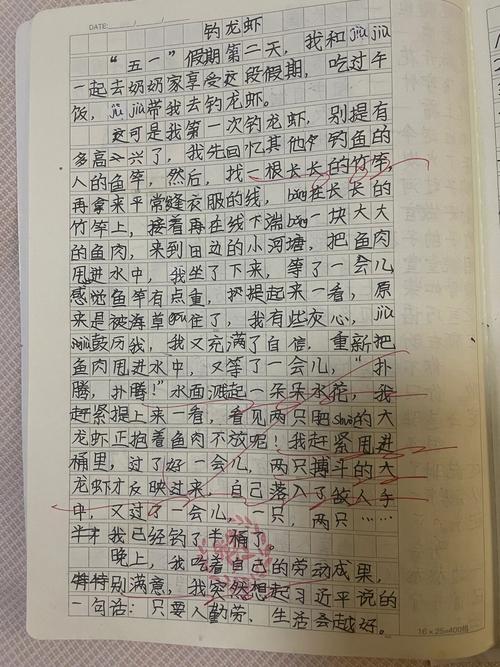 DATE:
钓龙虾
“五一”假期第二天，我和jiù jiu
一起去奶奶家享受这段假期，吃过午
饭，jiù jiu带我去钓龙虾。
这可是我第一次钓龙虾，别提有
多高兴了，我先回忆其他钓鱼的
人的鱼竿，然后，找一根长长的竹竿，
再拿来平常缝衣服的线，bǎng在长长的
竹竿上，接着再在线下端bǎng一块大大
的鱼肉，来到田边的小河塘，把鱼肉
甩进水中，我坐了下来，等了一会儿
感觉鱼竿有点重，提起来一看，原
来是被海草gōu住了，我有些灰心，jiù
jiu鼓历我，我又充满了自信，重新把
鱼肉甩进水中，又等了一会儿，“扑
腾，扑腾！”水面溅起一朵朵水花，我
赶紧提上来一看，看见两只肥shuò的大
龙虾正抱着鱼肉不放呢！我赶紧甩进
桶里，过了好一会儿，两只搏斗的大
龙虾才反映过来，自己落入了敌人手
中，又过了一会儿，一只，两只……
我已经钓了半桶了。
晚上，我吃着自己的劳动成果，
特别满意，我突然想起习近平说的
一句话：只要人勤劳，生活会越好。
16×25=400格